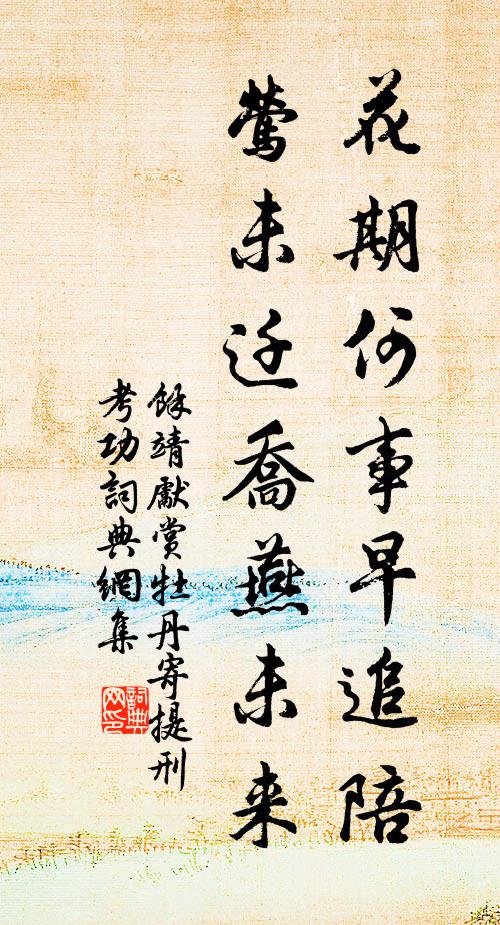 花期何事早追陪
鶯未迁喬燕未来
餘靖獻赏牡丹寄提刑
考功詞典網集
詞典网印